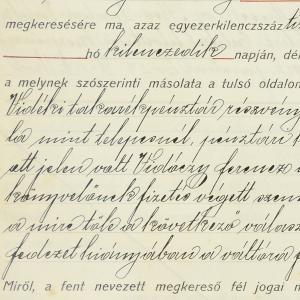 megkeresésére ma, azaz egyezerkilenczszáz
hó kilenczedik napján, dél
a melynek szószerinti másolata a tulsó oldalon
Vidéki takarékpénztár részvény
la mint telepesnél, pénztári
ott jelen volt Vidóczy Ferencz
könyvelőnek fizetés végett
a mire tőle a következő válasz
fedezet hiányában a váltóra
Miről, a fent nevezett megkereső fél jogai